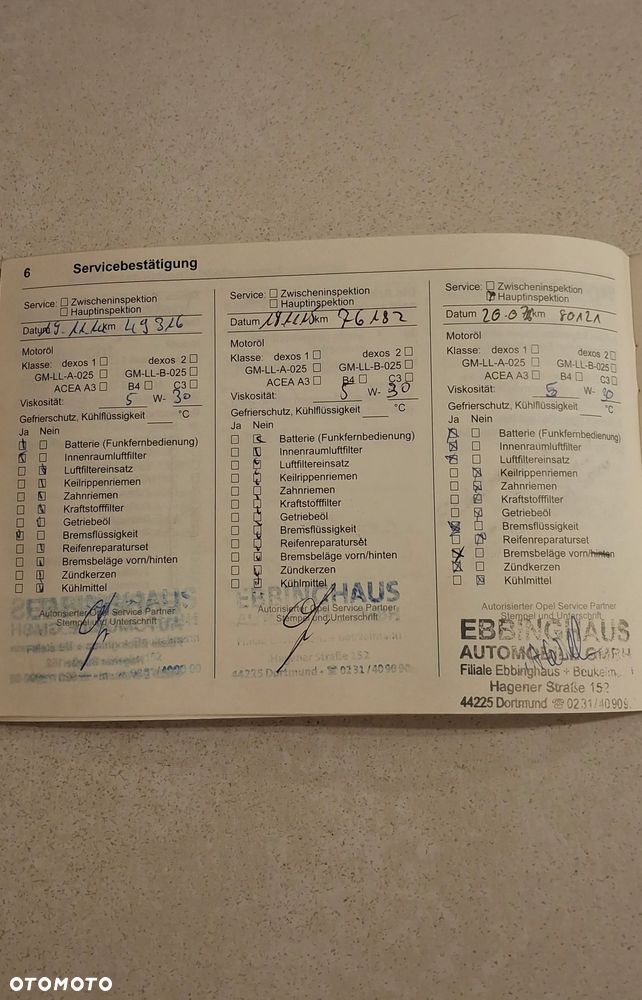 6 Servicebestätigung
Service: Zwischeninspektion
Hauptinspektion
Datum km 49316
Motoröl
Klasse: dexos 1 dexos 2
GM-LL-A-025 GM-LL-B-025
ACEA A3 B4 C3
Viskosität: 5 W- 30
Gefrierschutz, Kühlflüssigkeit °C
Ja Nein
Batterie (Funkfernbedienung)
Innenraumluftfilter
Luftfiltereinsatz
Keilrippenriemen
Zahnriemen
Kraftstofffilter
Getriebeöl
Bremsflüssigkeit
Reifenreparaturset
Bremsbeläge vorn/hinten
Zündkerzen
Kühlmittel
Autorisierter Opel Service Partner
Stempel und Unterschrift
Service: Zwischeninspektion
Hauptinspektion
Datum km 76182
Motoröl
Klasse: dexos 1 dexos 2
GM-LL-A-025 GM-LL-B-025
ACEA A3 B4 C3
Viskosität: 5 W- 30
Gefrierschutz, Kühlflüssigkeit °C
Ja Nein
Batterie (Funkfernbedienung)
Innenraumluftfilter
Luftfiltereinsatz
Keilrippenriemen
Zahnriemen
Kraftstofffilter
Getriebeöl
Bremsflüssigkeit
Reifenreparaturset
Bremsbeläge vorn/hinten
Zündkerzen
Kühlmittel
EBBINGHAUS
Autorisierter Opel Service Partner
Stempel und Unterschrift
Hagener Straße 152
44225 Dortmund · ☎ 0231/40 90 90
Service: Zwischeninspektion
Hauptinspektion
Datum km 80121
Motoröl
Klasse: dexos 1 dexos 2
GM-LL-A-025 GM-LL-B-025
ACEA A3 B4 C3
Viskosität: 5 W- 30
Gefrierschutz, Kühlflüssigkeit °C
Ja Nein
Batterie (Funkfernbedienung)
Innenraumluftfilter
Luftfiltereinsatz
Keilrippenriemen
Zahnriemen
Kraftstofffilter
Getriebeöl
Bremsflüssigkeit
Reifenreparaturset
Bremsbeläge vorn/hinten
Zündkerzen
Kühlmittel
Autorisierter Opel Service Partner
Stempel und Unterschrift
EBBINGHAUS
GMBH
Filiale Ebbinghaus + Beukelm
Hagener Straße 152
44225 Dortmund ☎ 0231/40909
OTOMOTO